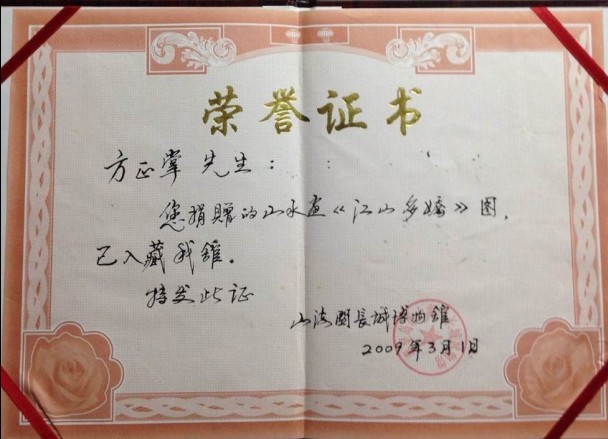 荣誉证书
方正掌 先生：
您捐赠的山水画《江山多娇》图，
已入藏我馆。
特发此证
山海關長城博物馆
2009年3月1日